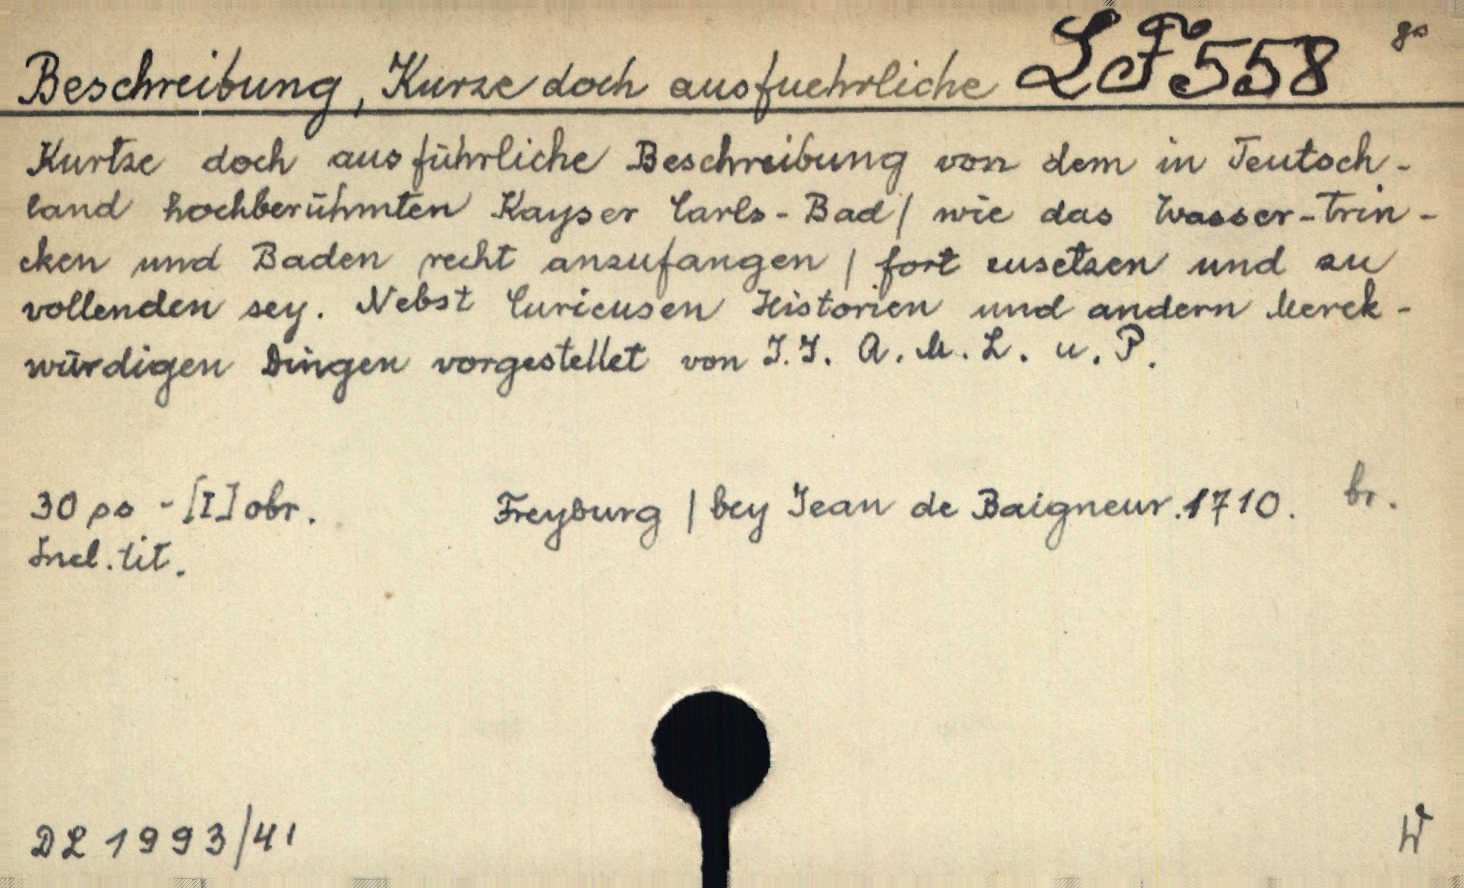 gs
Beschreibung, Kurze doch ausfuehrliche LF558
Kurtze doch ausführliche Beschreibung von dem in Teutsch-
land hochberühmten Kayser Carls-Bad / wie das Wasser-Trin-
cken und Baden recht anzufangen / fort zusetzen und zu
vollenden sey. Nebst Curieusen Historien und andern Merck-
würdigen Dingen vorgestellet von J.J. A. M. L. u. P.
30 ps - [I] obr. Freyburg / bey Jean de Baigneur. 1710. br.
Incl. tit.
DL 1993/41 W